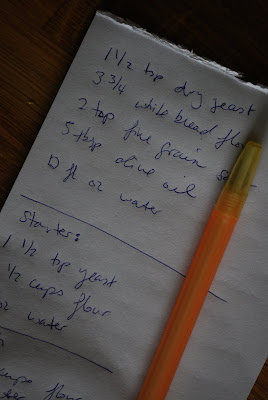 1 1/2 tsp dry yeast
3 3/4 white bread
2 tsp fine grain
5 tbsp olive oil
10 fl oz water
Starter:
1 1/2 tsp yeast
1/2 cups flour
oz water
cups flour
water